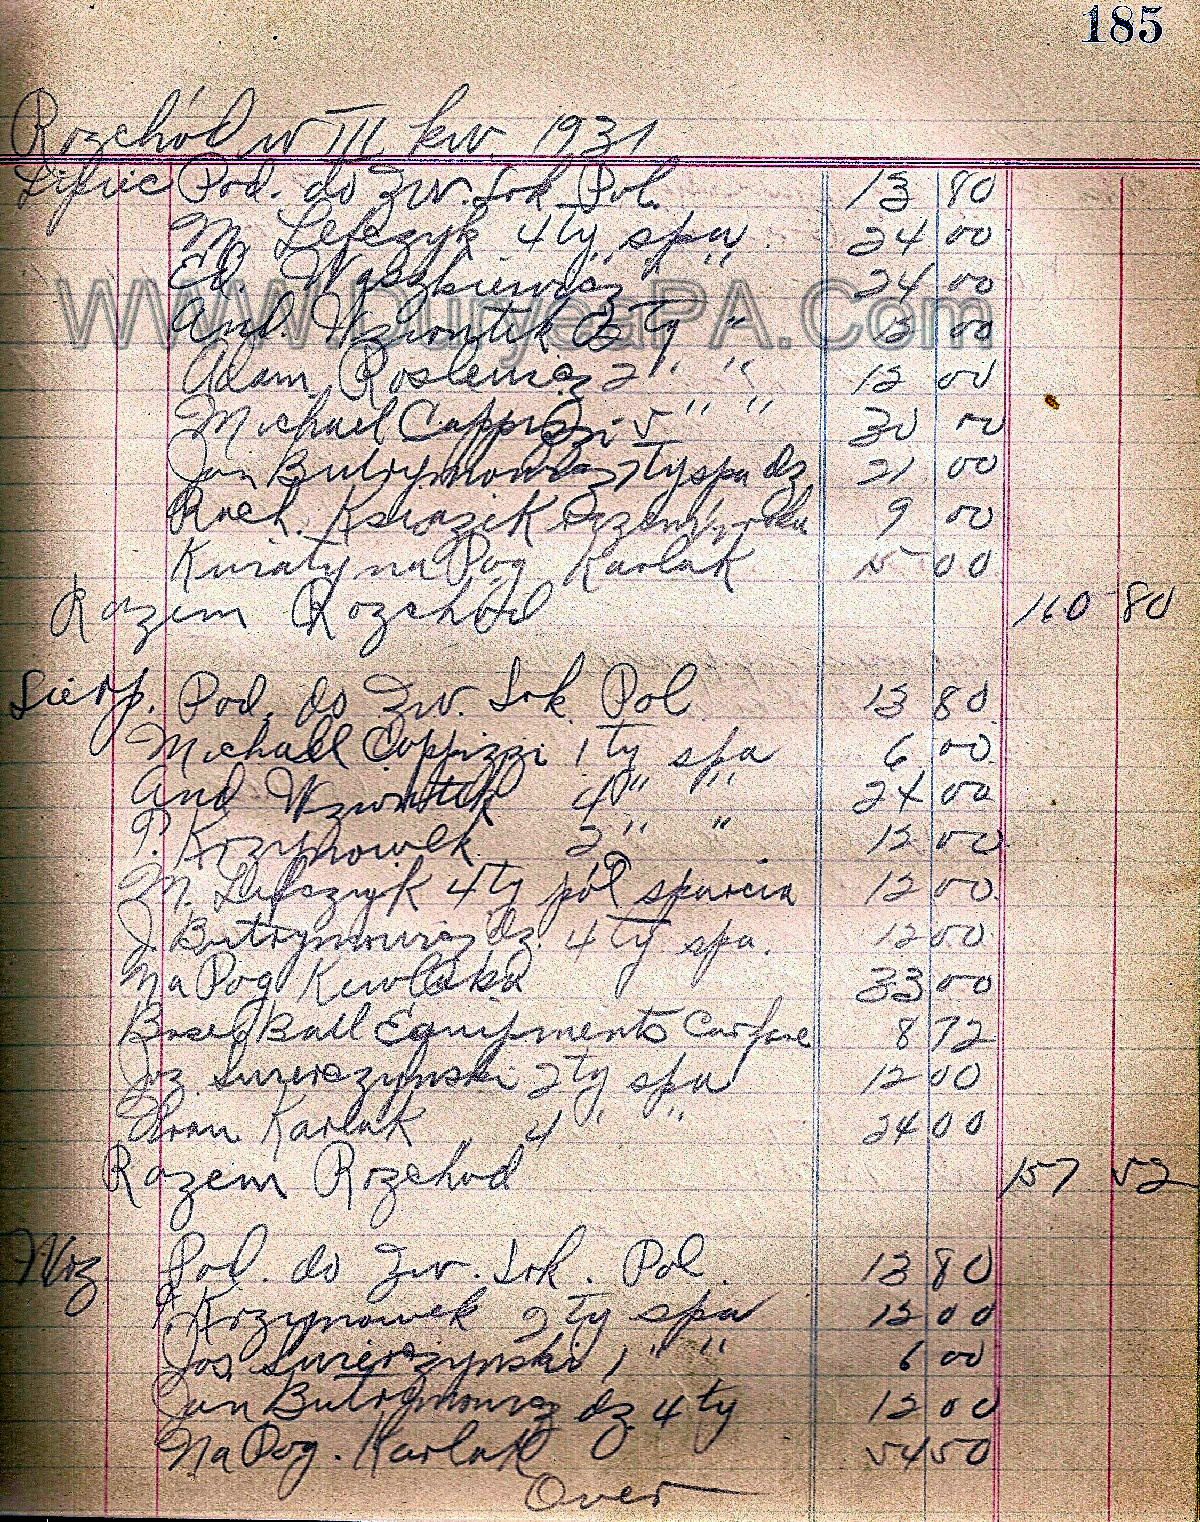 185
Rozchód w III kw. 1931
Lipiec Pod. do Zw. Sok Pol. 13 80
M. Lefczyk 4 ty spa. 24 00
Ed. Waszkiewicz " " 24 00
And. Wziontek ty " 00
Adam 2 " " 12 00
Michael Coppizzi 5 " " 30 00
Jan Butrymowicz 7 ty spa dz. 21 00
Rach. Ksiazik 9 00
Kwiaty na Pog Karlak 15 00
Razem Rozchód 160 80
Sierp. Pod. do Zw. Sok. Pol 13 80
Michael Coppizzi 1 ty spa 6 00
And Wziontek 4 " " 24 00
P. Krzynowek 2 " " 12 00
M. Lefczyk 4 ty pół sparcia 12 00
J. Butrymowicz dz. 4 ty spa. 12 00
Na Pog 33 00
Base Ball Equipments Carfare 8 72
Joz Swierczynski 2 ty spa 12 00
Karlak 4 " " 24 00
Razem Rozchod 157 52
Wrz Pod. do Zw. Sok. Pol. 13 80
P. Krzynowek 2 ty spa 12 00
Jos. Swierczynski 1 " " 6 00
Jan Butrymowicz dz 4 ty 12 00
Na Pog. Karlak 54 50
Over
WWW.DuryeaPA.Com